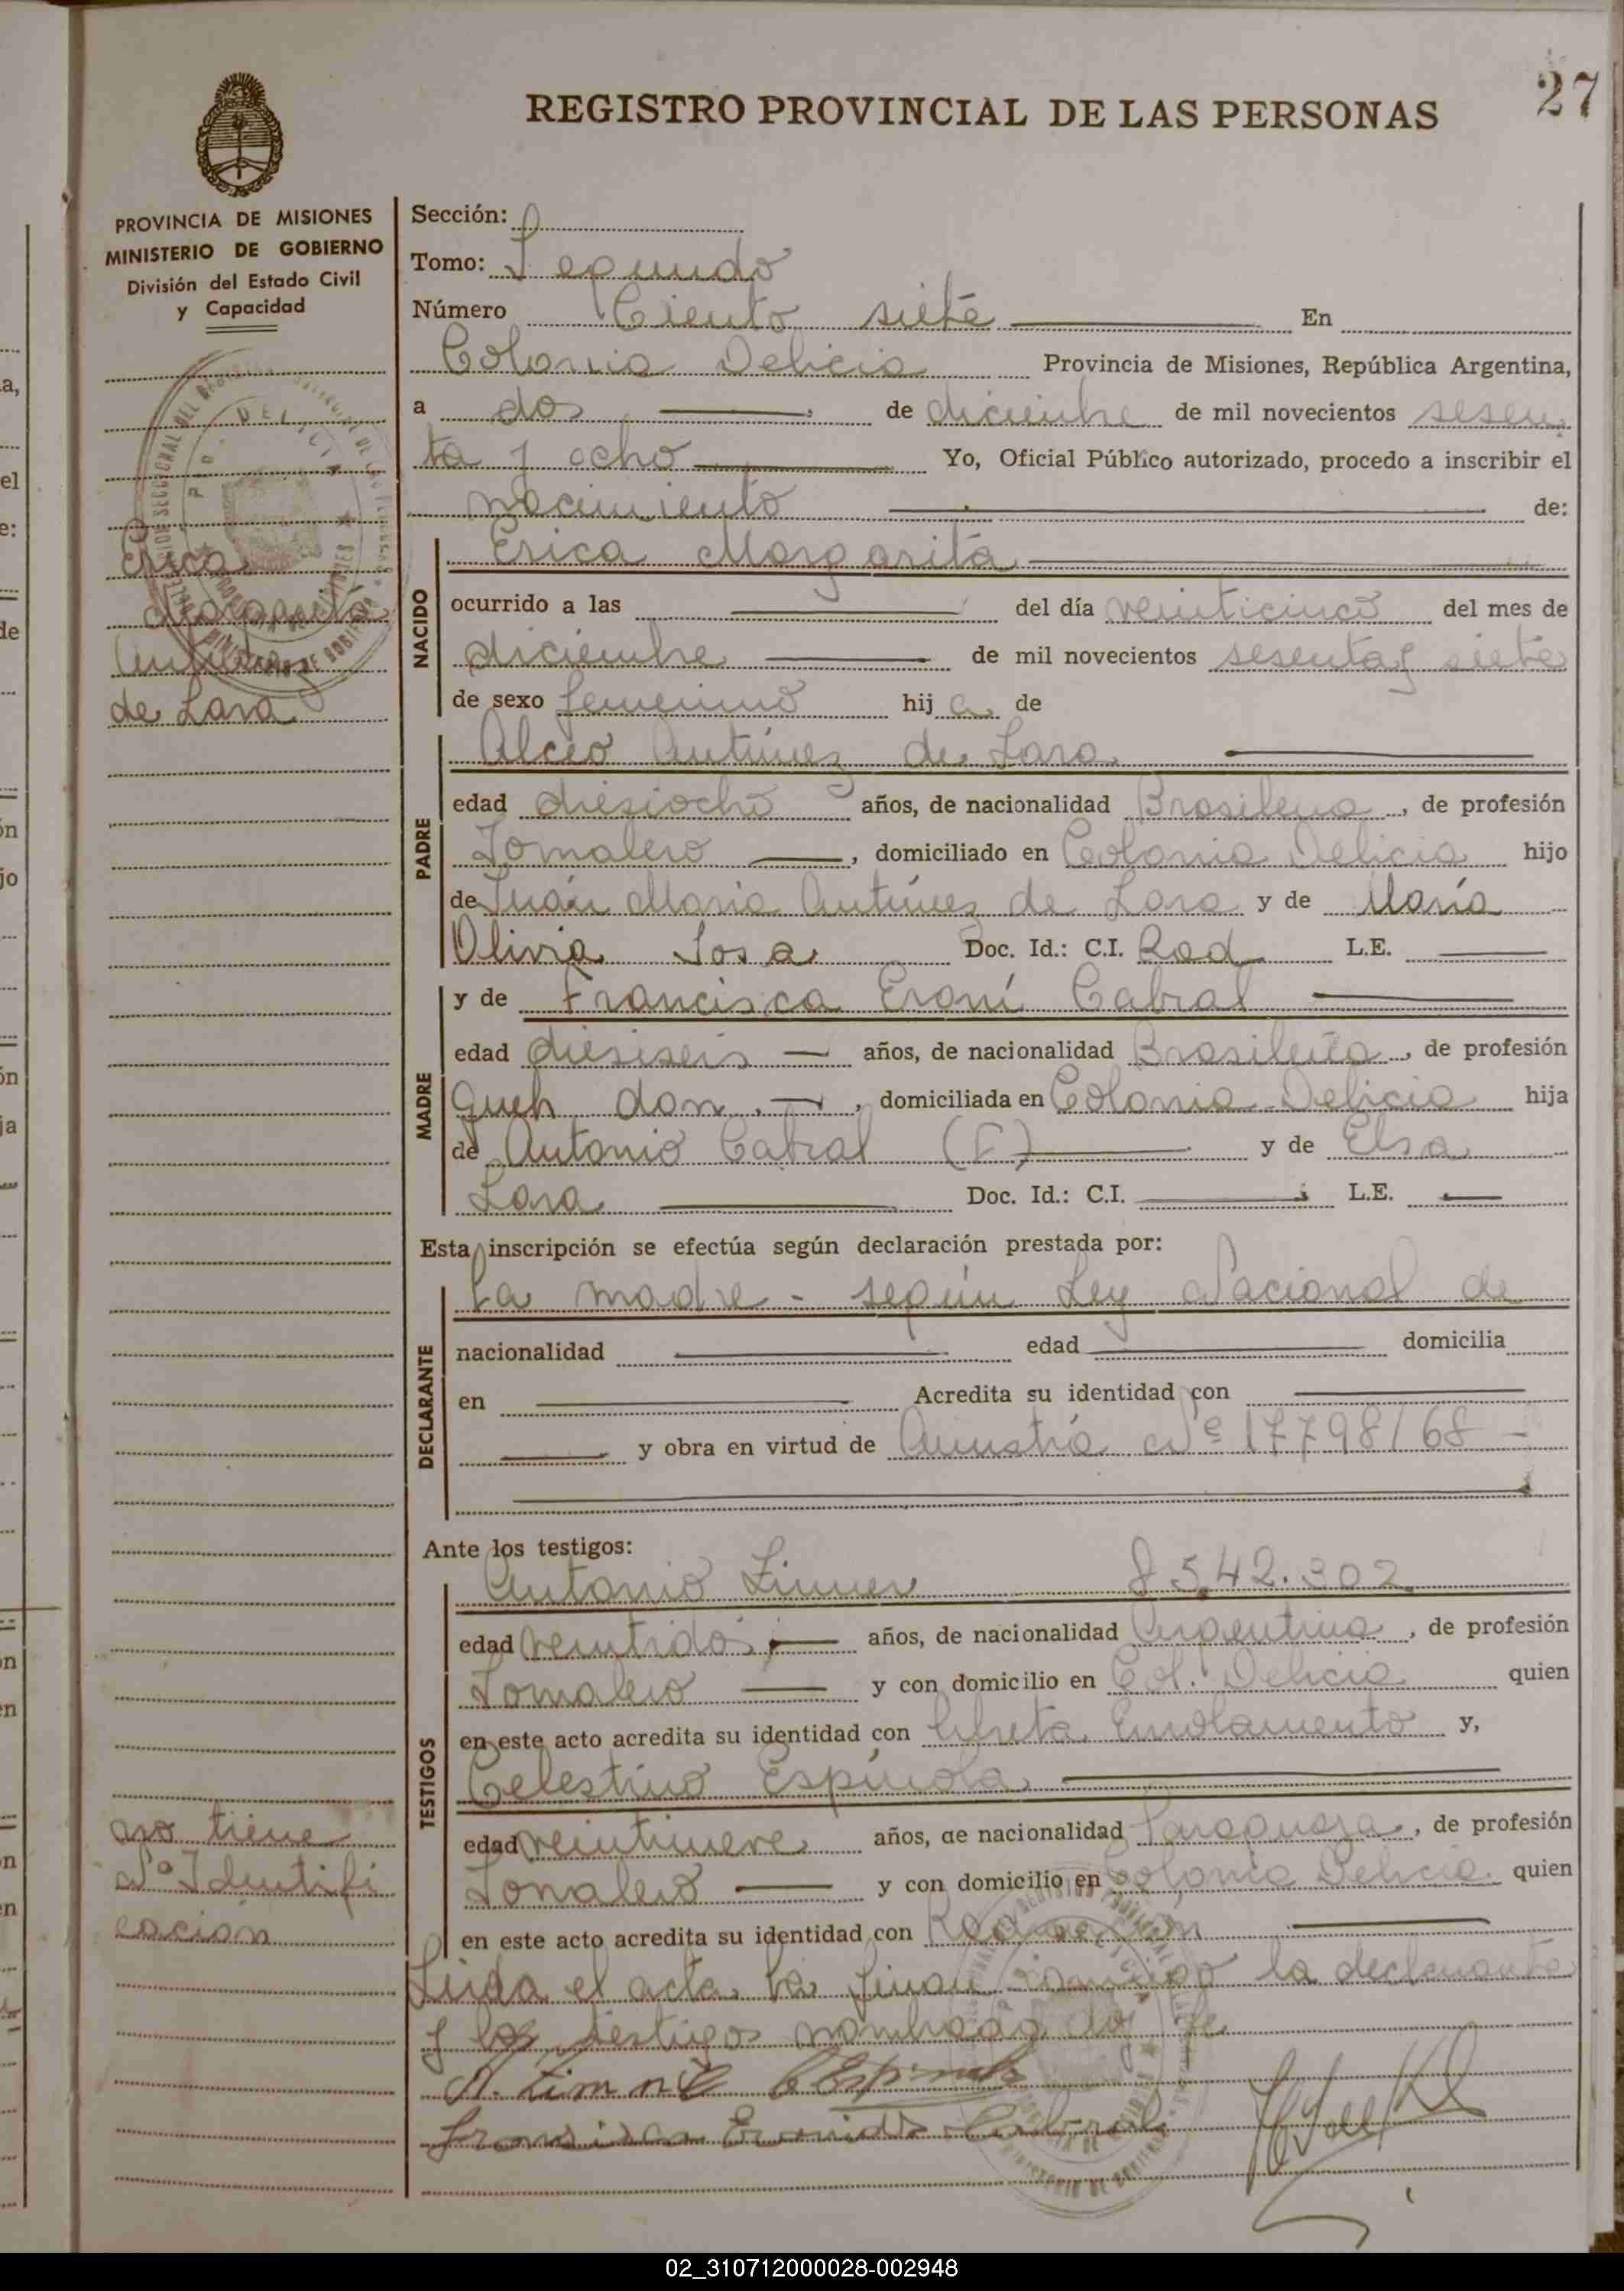 27
REGISTRO PROVINCIAL DE LAS PERSONAS
PROVINCIA DE MISIONES
MINISTERIO DE GOBIERNO
División del Estado Civil
y Capacidad
Erica
Margarita
Antúnez
de Lara
no tiene
Nº Identifi
cación
Sección:
Tomo: Segundo
Número Ciento siete En
Colonia Delicia Provincia de Misiones, República Argentina,
a dos de diciembre de mil novecientos sesen
ta y ocho Yo, Oficial Público autorizado, procedo a inscribir el
nacimiento de:
NACIDO
Erica Margarita
ocurrido a las del día veinticinco del mes de
diciembre de mil novecientos sesenta y siete
de sexo femenino hij a de
PADRE
Alceo Antúnez de Lara
edad diesiocho años, de nacionalidad Brasilena, de profesión
Jornalero, domiciliado en Colonia Delicia hijo
de Juán María Antúnez de Lara y de María
Olivia Sosa Doc. Id.: C.I. Rad L.E.
MADRE
y de Francisca Eroní Cabral
edad diesiseis años, de nacionalidad Brasileña, de profesión
Queh dom., domiciliada en Colonia Delicia hija
de Antonio Cabral (F) y de Elsa
Lara Doc. Id.: C.I. L.E.
Esta inscripción se efectúa según declaración prestada por:
DECLARANTE
La madre - según Ley Nacional de
nacionalidad edad domicilia
en Acredita su identidad con
y obra en virtud de Amnistía Nº 17798/68 -
Ante los testigos:
TESTIGOS
Antonio Zimer 8542.302
edad veintidos años, de nacionalidad Argentina, de profesión
Jornalero y con domicilio en Col. Delicia quien
en este acto acredita su identidad con libreta Enrolamento y,
Celestino Espínola
edad veintinueve años, de nacionalidad Paraguaya, de profesión
Jornalero y con domicilio en Colonia Delicia quien
en este acto acredita su identidad con Radicación
Leida el acta la firman conmigo la declarante
y los testigos nombrado doy fe
C Espinola
Cabral
02_310712000028-002948